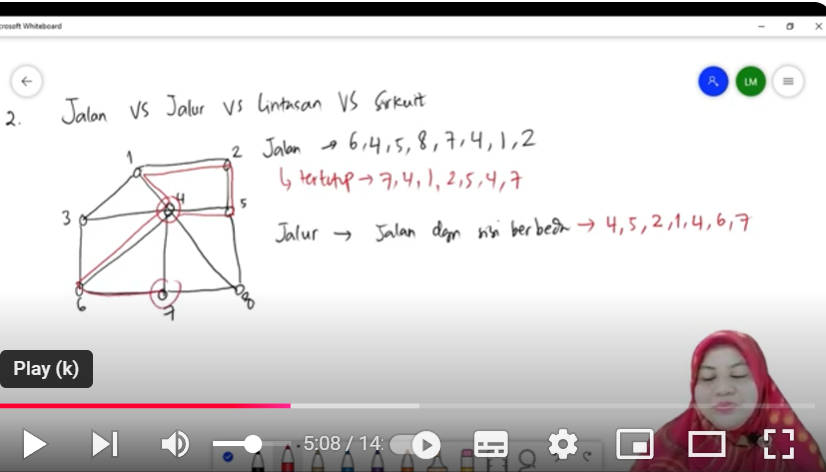 crosoft Whiteboard
LM
2. Jalan vs Jalur vs Lintasan vs Sirkuit
1
2
3
4
5
6
7
8
Jalan → 6,4,5,8,7,4,1,2
↳ tertutup → 7,4,1,2,5,4,7
Jalur → Jalan dgn sisi berbeda → 4,5,2,1,4,6,7
Play (k)
5:08 / 14: